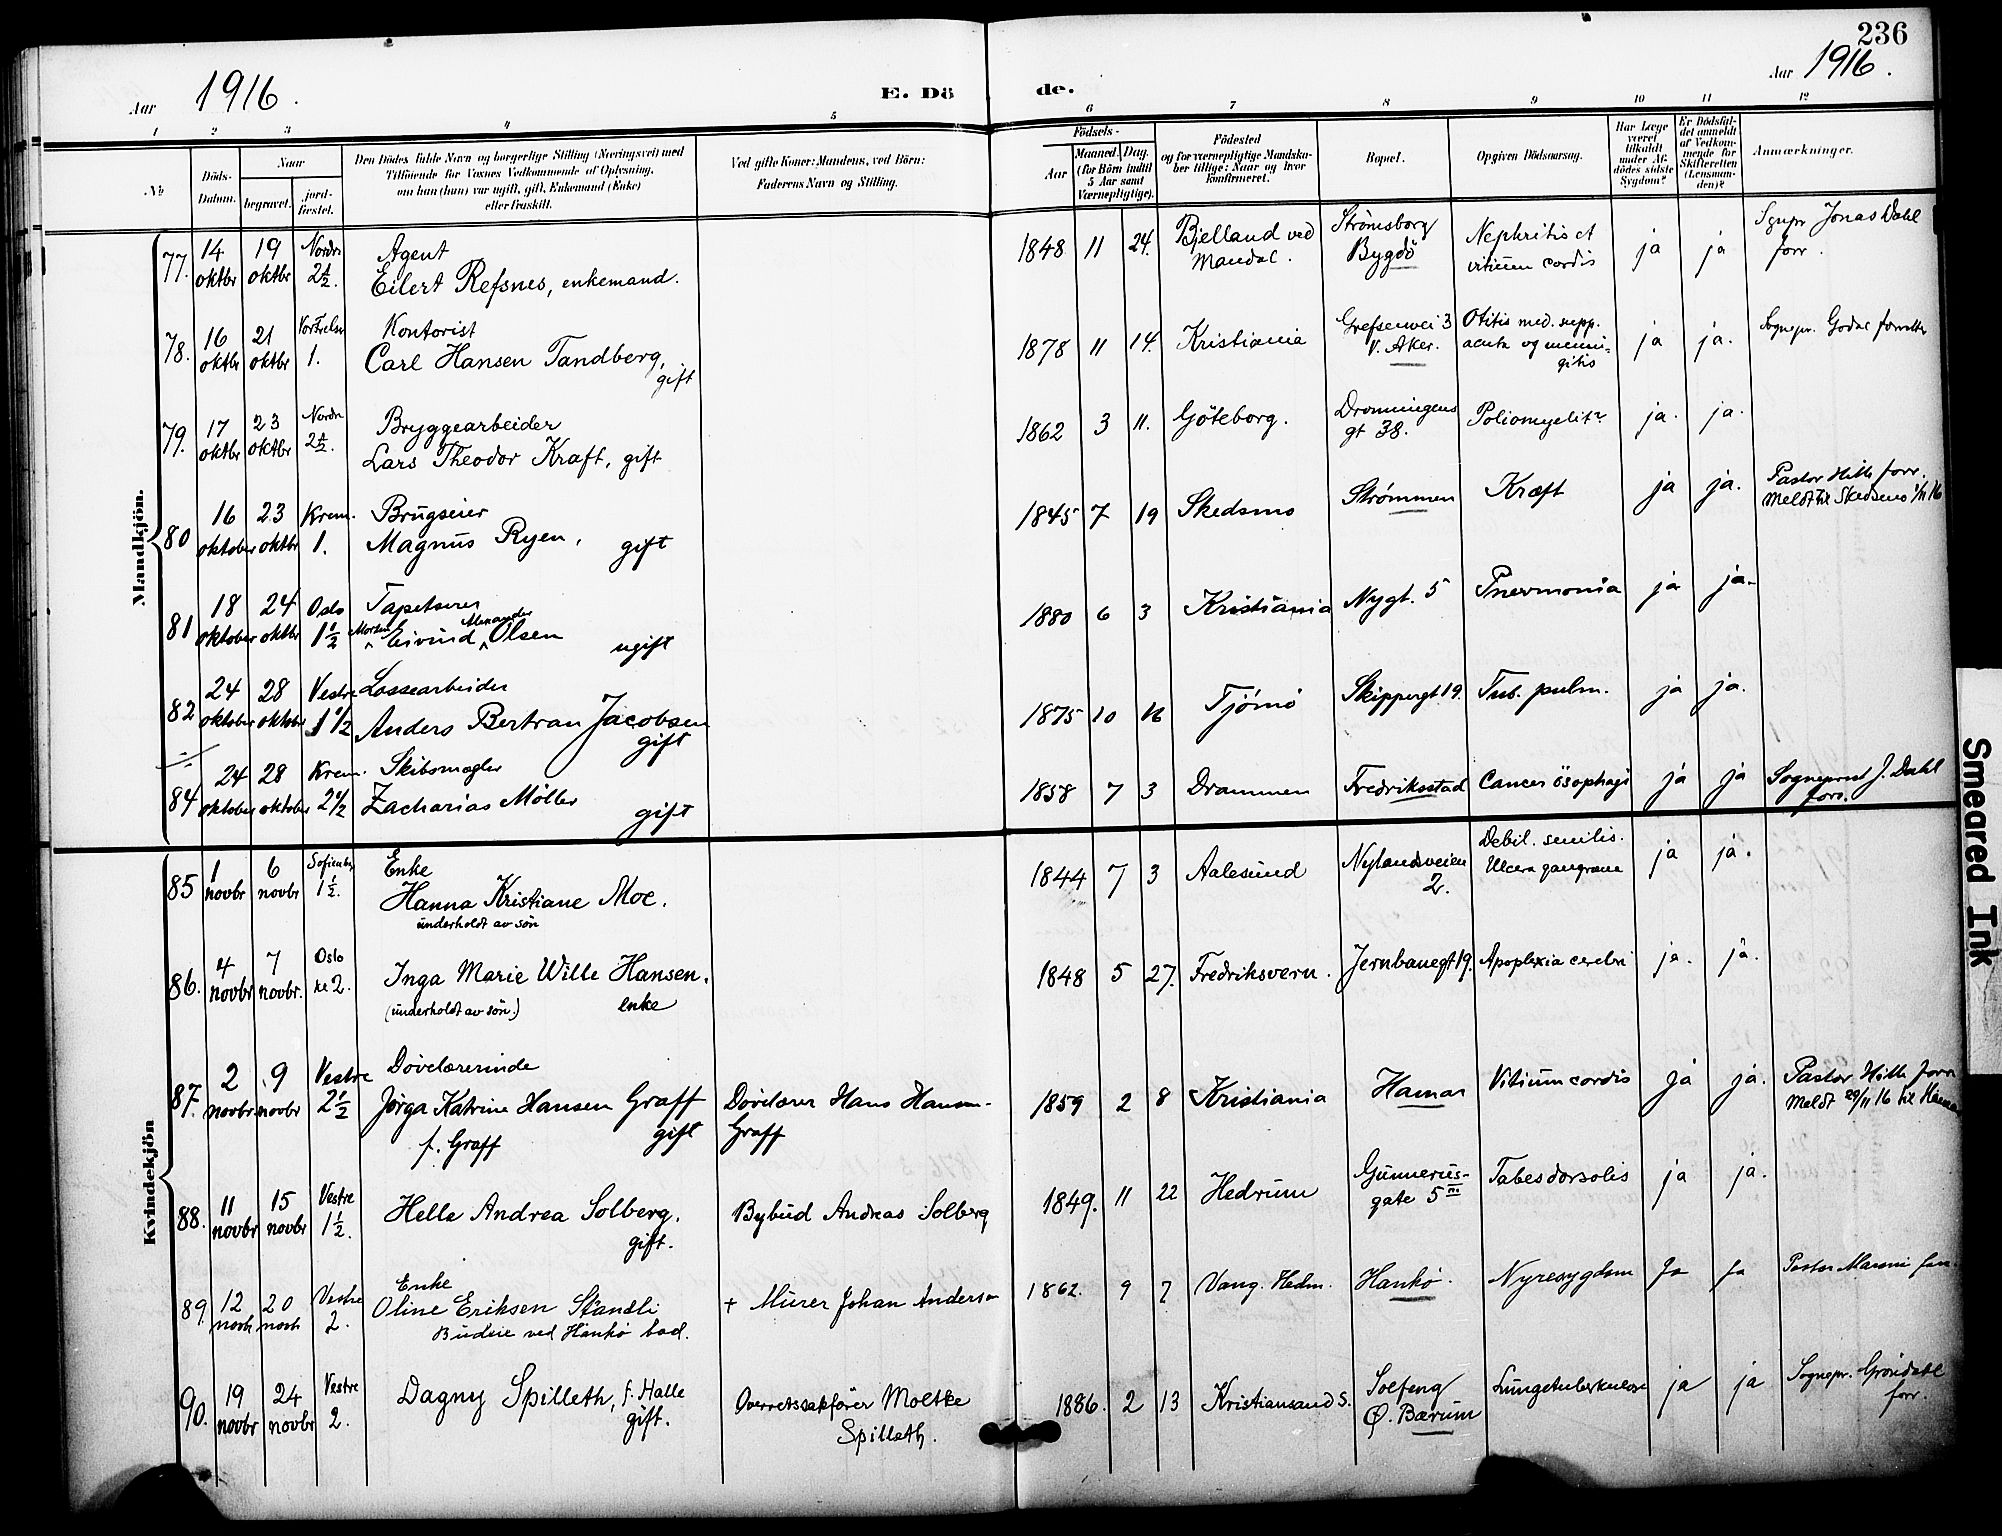 236
Aar 1916.
E. Dö
de.
Aar 1916.
1 2 3 4 5 6 7 8 9 10 11 12
No
Döds-Datum.
Naar
begravet.
jord-fæstet.
Den Dödes fulde Navn og borgerlige Stilling (Næringsvei) med
Tilföiende for Voxnes Vedkommende af Oplysning,
om han (hun) var ugift, gift, Enkemand (Enke)
eller fraskilt.
Ved gifte Koner: Mandens, ved Börn:
Faderens Navn og Stilling.
Födsels-
Aar
Maaned. Dag.
(for Börn indtil
5 Aar samt
Værnepligtige).
Födested
og for værnepligtige Mandska-
ber tillige: Naar og hvor
konfirmeret.
Bopæl.
Opgiven Dödsaarsag.
Har Læge
været
tilkaldt
under Af-
dödes sidste
Sygdom?
Er Dödsfal-
det anmeldt
af Vedkom-
mende for
Skifteretten
(Lensman-
den)?
Anmærkninger.
Mandkjön.
77. 14 oktbr 19 oktbr Nordre 2½. Agent
Eilert Refsnes, enkemand.
1848 11 24. Bjelland ved Mandal. Strömsborg Bygdö Nephritis et vitium cordis ja ja Sgnpr Jonas Dahl forr.
78. 16 oktbr 21 oktbr Vor Frelser 1. Kontorist
Carl Hansen Tandberg, gift
1878 11 14. Kristiania Grefsenvei 3 V. Aker. Otitis med. supp. acuta og meningitis ja ja. Sognepr. Godal
79. 17 oktbr 23 oktbr Nordre 2½. Bryggearbeider
Lars Theodor Kraft, gift
1862 3 11. Göteborg. Dronningens gt 38. Poliomyelit ja. ja.
80 16 oktober 23 oktbr Krem. 1. Brugseier
Magnus Ryen, gift
1845 7 19 Skedsmo Strømmen Kræft ja ja. Pastor Hille forr. Meldt til Skedsmo 1/11 16
81 18 oktober 24 oktbr Oslo 1½ Tapetserer
Morten Eivind Alexander Olsen ugift
1880 6 3 Kristiania Nygt. 5 Pnevmonia ja ja.
82 24 oktober 28 oktober Vestre 1½ Lossearbeider
Anders Bertran Jacobsen gift
1875 10 16 Tjömö Skippergt 19. Tub. pulm. ja ja.
84 24 oktober 28 oktober Krem. 2½ Skibsmægler
Zacharias Möller gift
1858 7 3 Drammen Fredriksstad Cancer ösophagi ja ja Sogneprest J. Dahl forr.
Kvindekjön
85 1 novbr 6 novbr Sofienbg 1½. Enke
Hanna Kristiane Moe.
underholdt av sön
1844 7 3 Aalesund Nylandsveien 2. Debil. senilis. Ulcera gangræna ja ja.
86. 4 novbr 7 novbr. Oslo kl 2. Inga Marie Wille Hansen.
(underholdt av sön.) enke
1848 5 27. Fredriksvern. Jernbanegt 19. Apoplexia cerebri ja. ja.
87. 2 novbr 9 novbr Vestre 2½ Dövelærerinde
Jørga Katrine Hansen Graff gift
f. Graff
Dövelærer Hans Hansen-Graff
1859 2 8 Kristiania Hamar Vitium cordis ja ja. Pastor Hille forr Meldt 29/11 16 til Hamar
88. 11 novbr 15 novbr Vestre 1½. Helle Andrea Solberg. gift.
Bybud Andreas Solberg
1849. 11 22 Hedrum Gunnerus-gate 5 III Tabes dorsalis ja ja.
89. 12 novb 20 novb Vestre 2. Enke
Oline Eriksen Standli
Budeie ved Hankö bad.
+ Murer Johan Anderson
1862. 9 7 Vang. Hedm. Hankö. Nyresygdom Ja Ja Pastor
90. 19 novbr 24 novbr Vestre 2. Dagny Spilleth, f. Halle gift.
Overretssakfører Moltke Spilleth.
1886. 2 13 Kristiansand S. Solfeng Ø. Bærum Lungetuberkulose ja ja Sognepr. Gröndahl forr.
Smeared Ink